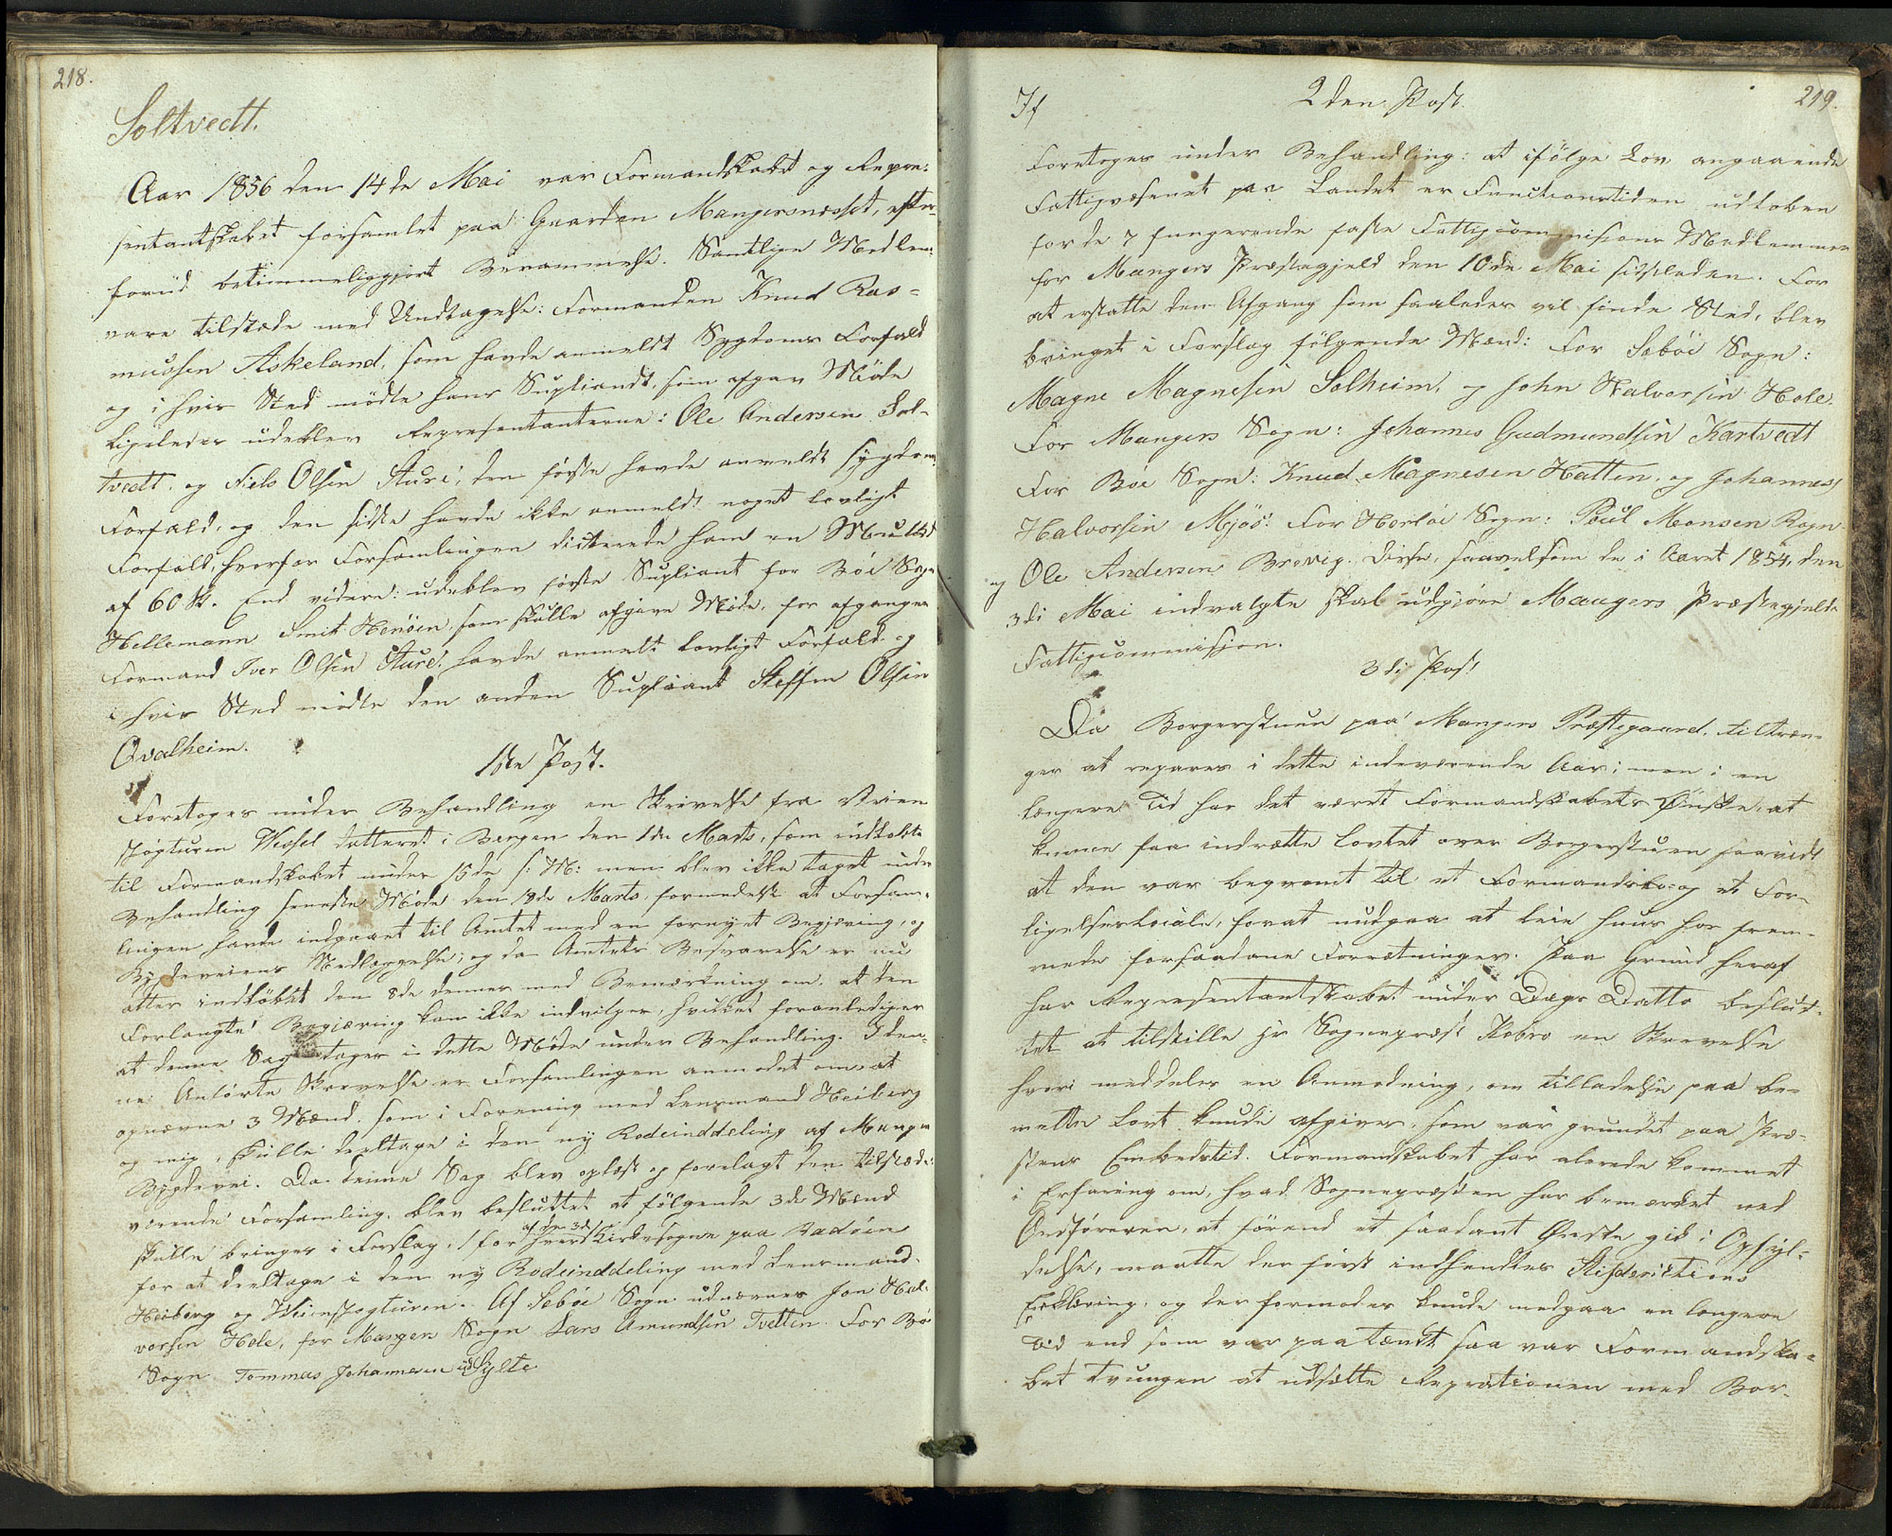 218.
Soltvedt.
Aar 1856 den 14de Mai var Formandskabet og Repre-
sentantskabet forsamlet paa Gaarden Mangersnesset, efter
forud betimmeliggjort Berammelse. Samtlige Medlem:
vare tilstæde med Undtagelse: Formanden Knud Ras-
mussen Askeland, som havde anmeldt Sygdoms Forfald
og i hvis Sted mødte hans Supliandt, som afgav Møde
Ligeledes udeblev Representanterne: Ole Andersen Sol-
tvedt, og Niels Olsen Sture, den første havde anmeldt sygdoms
Forfald, og den sidste havde ikke anmeldt noget lovligt
Forfald, hvorfor Forsamlingen dicterede ham en Mulkt
af 60 s. End videre: udeblev første Supliant for Bøe Sogn
Hellemann Smit Henøen, som skulle afgive Møde, for afgangen
Formand Iver Olsen Sture, havde anmeldt lovligt Forfald og
i hvis Sted mødte den anden Supliant Steffen Olsen
Qvalheim.
1ste Post.
Foretoges under Behandling en Skrivelse fra Veien
spögturen Wessel datteret i Bergen den 1de Marts, som indkobte
til Formandskabet under 15de s: M: men blev ikke taget under
Behandling seneste Møde den 18de Marts, formedelst at Forsam-
lingen havde indgaaet til Amtet med en fornyet Begjæring, og
Bygdeveiens Nedlæggelse; og da Amtets Besvarelse er nu
atter indløbet den 8de dennes med Bemærkning om, at den
Forlangte Begjæring kan ikke indvilges, hvilket foranlediger
at denne Sag tages i dette Møde under Behandling. I den-
ne Anførte Skrevelse er Forsamlingen anmodet om, at
opnævne 3 Mænd, som i Forening med Lensmand Heiberg
og mig, skulle deeltage i den ny Rodeinddeling af Manger
Bygdevei. Da denne Sag blev oplæst og forelagt den tilstæde-
værende Forsamling, blev besluttet at følgende 3de Mænd
skulle bringes i Forslag, 1 for hverd Kirkesogne paa Radöen
af de 3de
for at deeltage i den ny Rodeinddeling med Lensmand
Heiberg og Weinspogturen. Af Sebøe Sogn udnævnes Jon Hal-
vorsen Hole, for Mangers Sogn Lars Amundsen Tvetten. For Bø
Sogn Tommas Johannesen ud Sylte

7/
2den Post.
219.
Foretoges under Behandling: at ifölge Lov angaaende
Fattigvæsenet paa Landet er Functionstiden udloben
for de 7 fungerende faste Fattigcommissions Medlemmer
for Mangers Præstegjeld den 10de Mai sidstleden. For
at erstatte den Afgang som saaledes vil finde Sted, blev
bringet i Forslag følgende Mænd: For Sæbøe Sogn:
Magne Magnesen Solheim, og John Halvorsen Hole.
For Mangers Sogn: Johannes Gudmundsen Kartvedt
For Bøe Sogn: Knud Magnesen Hatten, og Johannes
Halvorsen Mjøs. For Herløe Sogn: Poul Monsen Rogn
og Ole Andersen Brevig. Disse, saavelsom de i Aaret 1854, den
3de Mai indvalgte skal udgjøre Mangers Præstegjelds
Fattigcommission.
3de Post
Da Borgerstuen paa Mangers Præstegaard, tiltræn-
ger at repares i dette indeværende Aar; men i en
længere Tid har det været Formandskabets Ønske, at
kunne faa indrætte Lovtet over Borgerstuen saavidt
at den var beqvemt til et Formandskab og et For-
ligelseslocale, forat undgaa at leie huus hos frem-
mede forsaadane Forretninger. Paa Grund heraf
har Representantskabet under Dags Datto beslut-
tet at tilstille Hr Sognepræst Kobro en Skrevelse
hvori meddeles en Anmodning, om tilladelse paa be-
meldte Lovt kunde afgives, som var grundet paa Præ-
stens Embedstid. Formandskabet har alerede kommet
i Erfaring om, hvad Sognepræsten har bemærket ved
Ordføreren, at førend et saadant Ønske gik i Opfyl-
delse, maatte der først indhendtes Stiftdirections
Erklæring, og der formodes kunde medgaa en længere
Tid end som var paatænkt saa var Formandska-
bet tvungen at udsætte Reprationen med Bor-